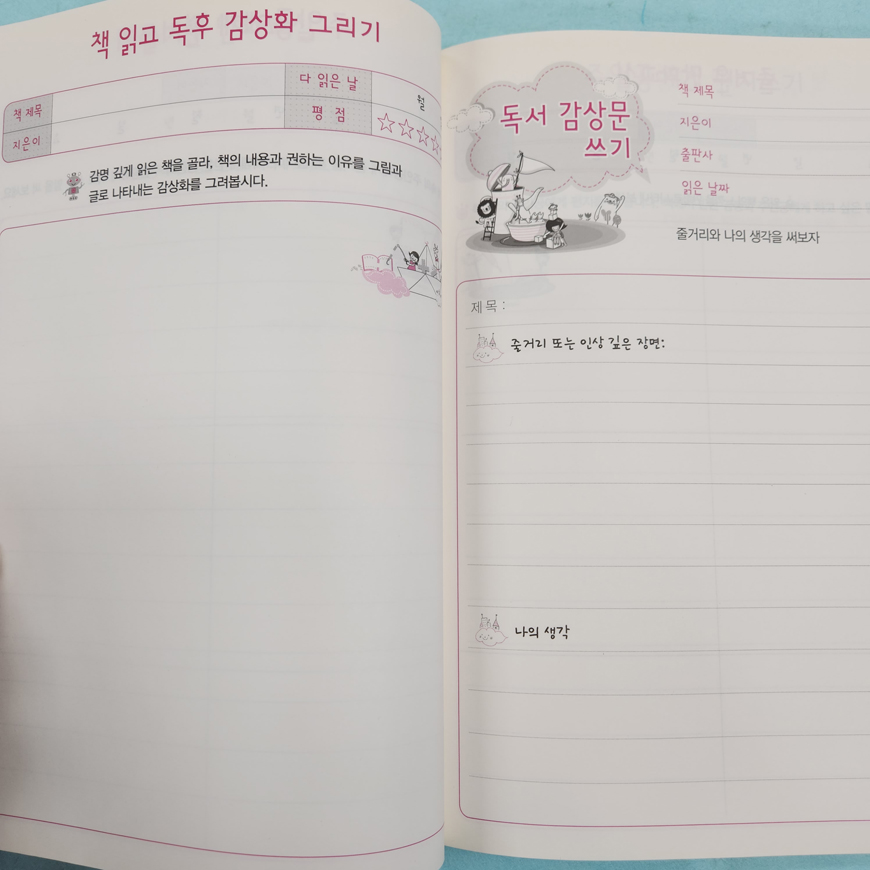 책 읽고 독후 감상화 그리기
책 제목
다 읽은 날
월
지은이
평 점
감명 깊게 읽은 책을 골라, 책의 내용과 권하는 이유를 그림과
글로 나타내는 감상화를 그려봅시다.
독서 감상문
쓰기
책 제목
지은이
출판사
읽은 날짜
줄거리와 나의 생각을 써보자
제목 :
줄거리 또는 인상 깊은 장면:
나의 생각